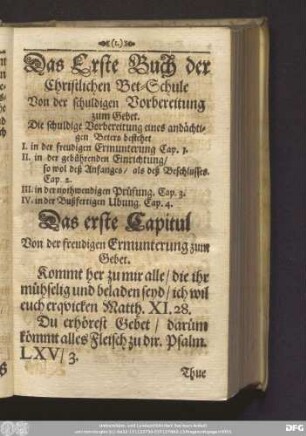 (1.)
Das Erste Buch der
Christlichen Bet-Schule
Von der schuldigen Vorbereitung
zum Gebet.
Die schuldige Vorbereitung eines andächti-
gen Beters bestehet
I. in der freudigen Ermunterung Cap. 1.
II. in der gebührenden Einrichtung/
so wol deß Anfanges/ als deß Beschlusses.
Cap. 2.
III. in der nothwendigen Prüfung. Cap. 3.
IV. in der Bußfertigen Ubung. Cap. 4.
Das erste Capitul
Von der freudigen Ermunterung zum
Gebet.
Kommt her zu mir alle/ die ihr
mühselig und beladen seyd/ ich wil
euch erqvicken Matth. XI. 28.
Du erhörest Gebet/ darüm
kömmt alles Fleisch zu dir. Psalm.
LXV/ 3.
Thue
DFG